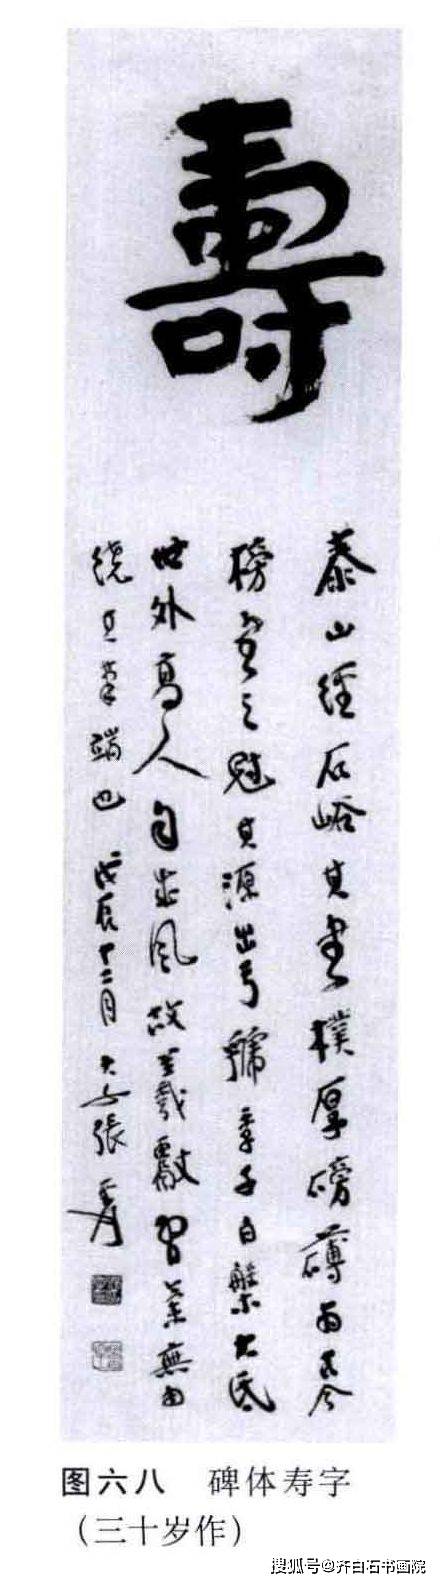 壽
泰山經石峪其書樸厚磅礴為古今
榜書之冠其源出乎虢季子白槃大氐
世外高人自風羲獻習無由
繞其筆端也 戊辰十二月 大千張爰
图六八 碑体寿字
（三十岁作）
搜狐号@齐白石书画院